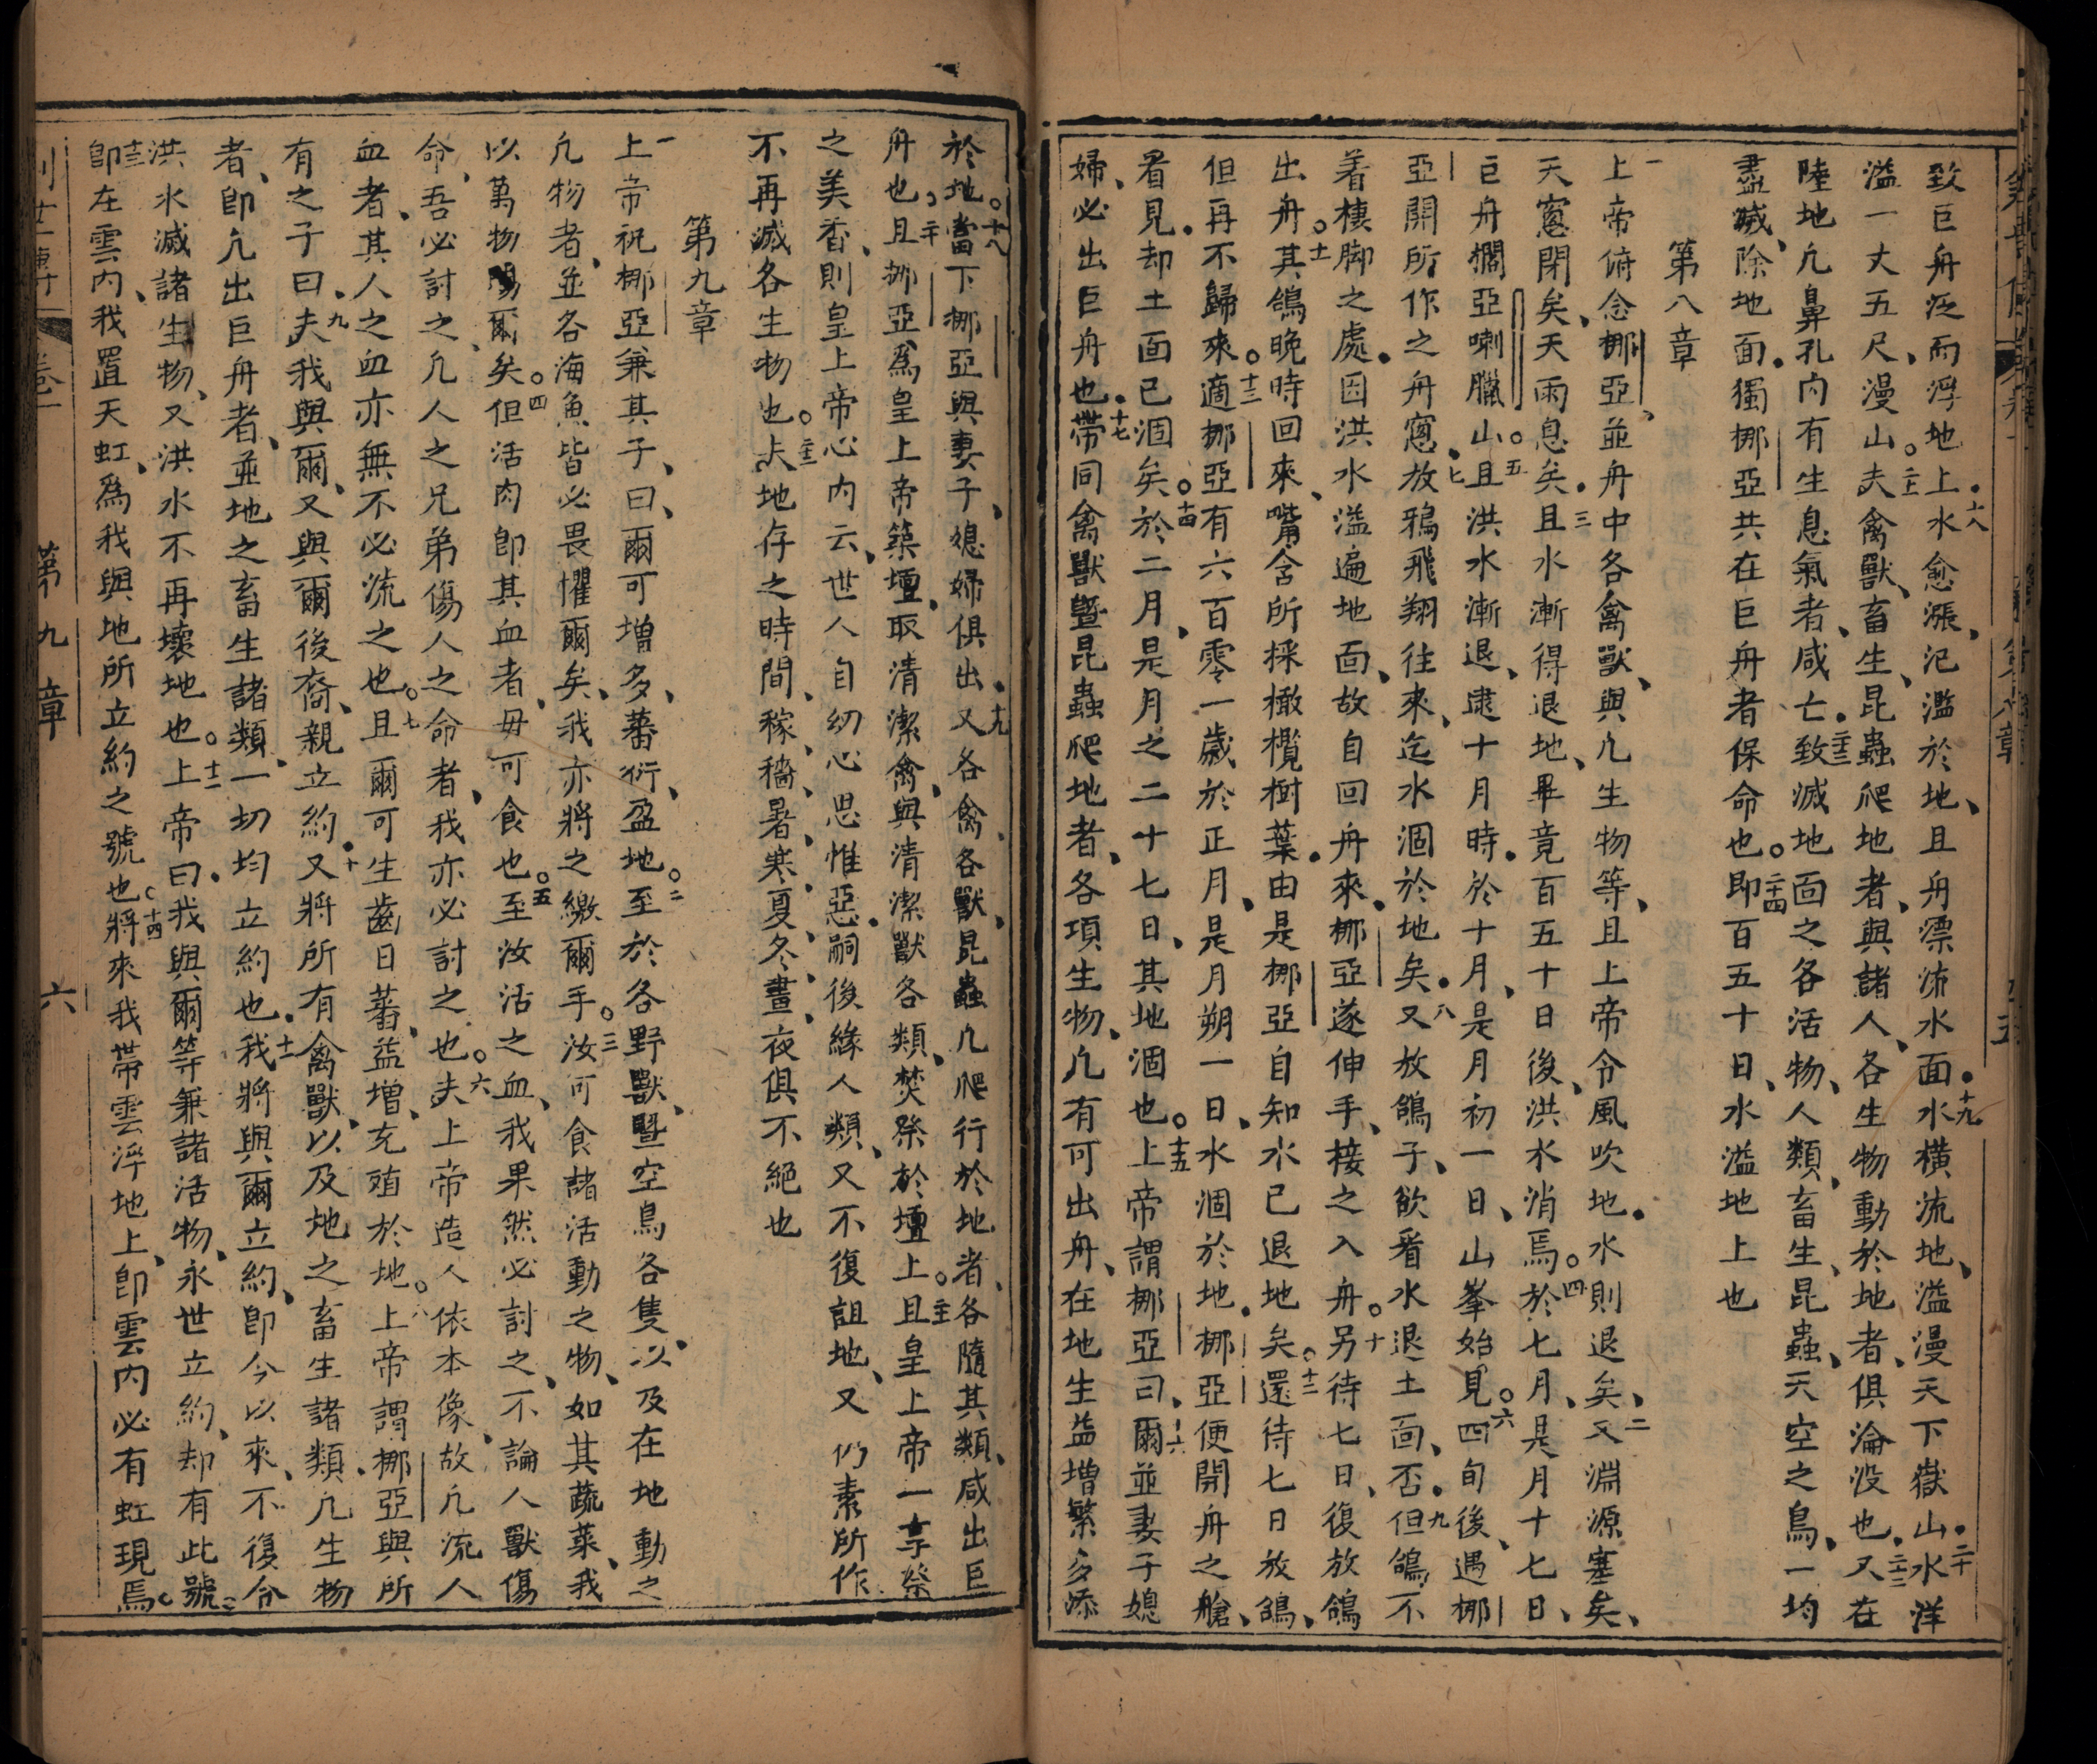 致巨舟泛而浮地上十八水愈漲氾濫於地且舟漂沛水面十九水橫流地溢漫天下嶽山二十水洋
溢一丈五尺漫山二十一夫禽獸畜生昆蟲爬地者與諸人各生物動於地者俱淪沒也二十二又在
陸地凢鼻孔內有生息氣者咸亡二十三致滅地面之各活物人類畜生昆蟲天空之鳥一均
盡滅除地面獨挪亞共在巨舟者保命也二十四即百五十日水溢地上也
第八章
一上帝俯念挪亞並舟中各禽獸與凢生物等且上帝令風吹地水則退矣二又淵源塞矣
天窻閉矣天雨息矣三且水漸得退地畢竟百五十日後洪水消焉四於七月是月十七日
巨舟擱亞喇臘山五且洪水漸退逮十月時於十月是月初一日山峯始見六四旬後遇挪
亞開所作之舟窻七放鴉飛翔往來迄水涸於地矣八又放鴿子欲看水退土面否九但鴿不
着棲脚之處因洪水溢遍地面故自回舟來挪亞遂伸手接之入舟十另待七日復放鴿
出舟十一其鴿晚時回來嘴含所採橄欖樹葉由是挪亞自知水已退地矣十二還待七日放鴿
但再不歸來十三適挪亞有六百零一歲於正月是月朔一日水涸於地挪亞便開舟之艙
看見却土面已涸矣十四於二月是月之二十七日其地涸也十五上帝謂挪亞曰十六爾並妻子媳
婦必出巨舟也十七帶同禽獸暨昆蟲爬地者各項生物凢有可出舟在地生益增繁多添
於地十八當下挪亞與妻子媳婦俱出十九又各禽各獸昆蟲凢爬行於地者各隨其類咸出巨
舟也二十且挪亞爲皇上帝築壇取清潔禽與清潔獸各類焚祭於壇上二十一且皇上帝一享祭
之美香則皇上帝心內云世人自幼心思惟惡嗣後緣人類又不復詛地又仍素所作
不再滅各生物也二十二夫地存之時間稼穡暑寒夏冬晝夜俱不絕也
第九章
一上帝祝挪亞兼其子曰爾可增多蕃衍盈地二至於各野獸暨空鳥各隻以及在地動之
凢物者並各海魚皆必畏懼爾矣我亦將之繳爾手三汝可食諸活動之物如其蔬菜我
以萬物賜爾矣四但活肉卽其血者毋可食也五至汝活之血我果然必討之不論人獸傷
命吾必討之凢人之兄弟傷人之命者我亦必討之也六夫上帝造人依本像故凢流人
血者其人之血亦無不必流之也七且爾可生齒日蕃益增充殖於地八上帝謂挪亞與所
有之子曰九夫我與爾又與爾後裔親立約十又將所有禽獸以及地之畜生諸類凢生物
者卽凢出巨舟者並地之畜生諸類一切均立約也十一我將與爾立約卽今以來不復令
洪水滅諸生物又洪水不再壞地也十二上帝曰我與爾等兼諸活物永世立約却有此號
十三卽在雲內我置天虹爲我與地所立約之號也十四將來我帶雲浮地上卽雲內必有虹現焉
卷一
第九章
六